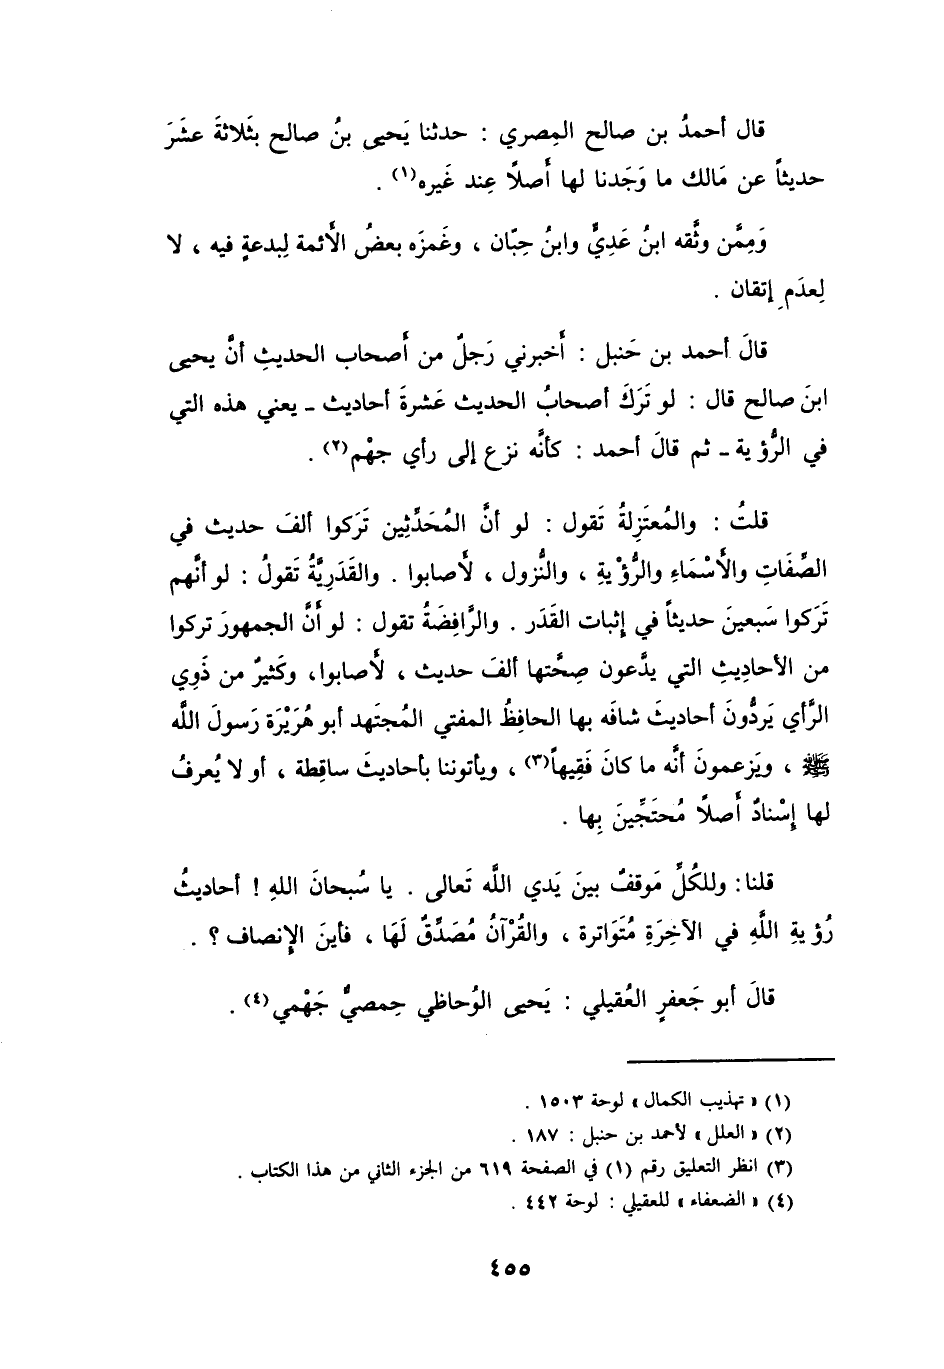 قال أحمدُ بن صالح المِصري : حدثنا يَحيى بنُ صالح بثَلاثةَ عشَرَ
حديثاً عن مَالك ما وَجَدنا لها أَصلًا عِند غَيره(١) .
وَمِمَّن وثَّقه ابنُ عَدِيٍّ وابنُ حِبّان ، وغَمزَه بعضُ الأَئمة لِبدعةٍ فيه ، لا
لِعدَمِ إتقان .
قالَ أحمد بن حَنبل : أَخبرني رَجلٌ من أَصحاب الحديثِ أنَّ يحيى
ابنَ صالح قال : لو تَرَكَ أصحابُ الحديث عَشرةَ أحاديث ـ يعني هذه التي
في الرُّؤية ـ ثم قالَ أحمد : كأنَّه نزع إلى رأي جهْم(٢) .
قلتُ : والمُعتَزِلةُ تَقول : لو أنَّ المُحَدِّثِين تَرَكوا ألفَ حديث في
الصِّفَاتِ والأَسْمَاءِ والرُّؤْيةِ ، والنُّزول ، لأَصابوا . والقَدَرِيَّةُ تَقولُ : لو أنَّهم
تَرَكوا سَبعينَ حديثاً في إِثبات القَدَر . والرَّافِضَةُ تقول : لو أَنَّ الجمهورَ تركوا
من الأحادِيثِ التي يدَّعون صِحَّتها ألفَ حديث ، لأَصابوا، وكَثيرٌ من ذَوِي
الرَّأي يَردُّونَ أحاديثَ شافَه بها الحافِظُ المفتي المُجتَهد أبو هُرَيْرَة رَسولَ اللَّه
ﷺ ، ويَزعمونَ أنَّه ما كانَ فَقِيهاً(٣) ، ويأتوننا بأحاديثَ ساقِطة ، أو لا يُعرفُ
لها إِسْنادٌ أَصلًا مُحتَجِّينَ بِها .
قلنا: وللكُلِّ مَوقفٌ بينَ يَدي اللَّه تَعالى . يا سُبحانَ اللهِ ! أحاديثُ
رُؤيةِ اللَّهِ في الآخِرَةِ مُتَوَاترة ، والقُرْآنُ مُصَدِّقٌ لَهَا ، فأينَ الإِنصاف ؟ .
قالَ أبو جَعفرٍ العُقيلي : يَحيى الوُحاظي حِمصيٌّ جَهْمي(٤) .
(١) « تهذيب الكمال » لوحة ١٥٠٣ .
(٢) « العلل » لأحمد بن حنبل : ١٨٧ .
(٣) انظر التعليق رقم (١) في الصفحة ٦١٩ من الجزء الثاني من هذا الكتاب .
(٤) « الضعفاء » للعقيلي : لوحة ٤٤٢ .
٤٥٥